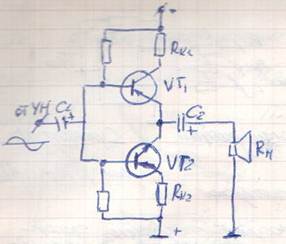 -
Rк1
VT1
от УН C1
+
C2
+
VT2
Rн
Rк2
+